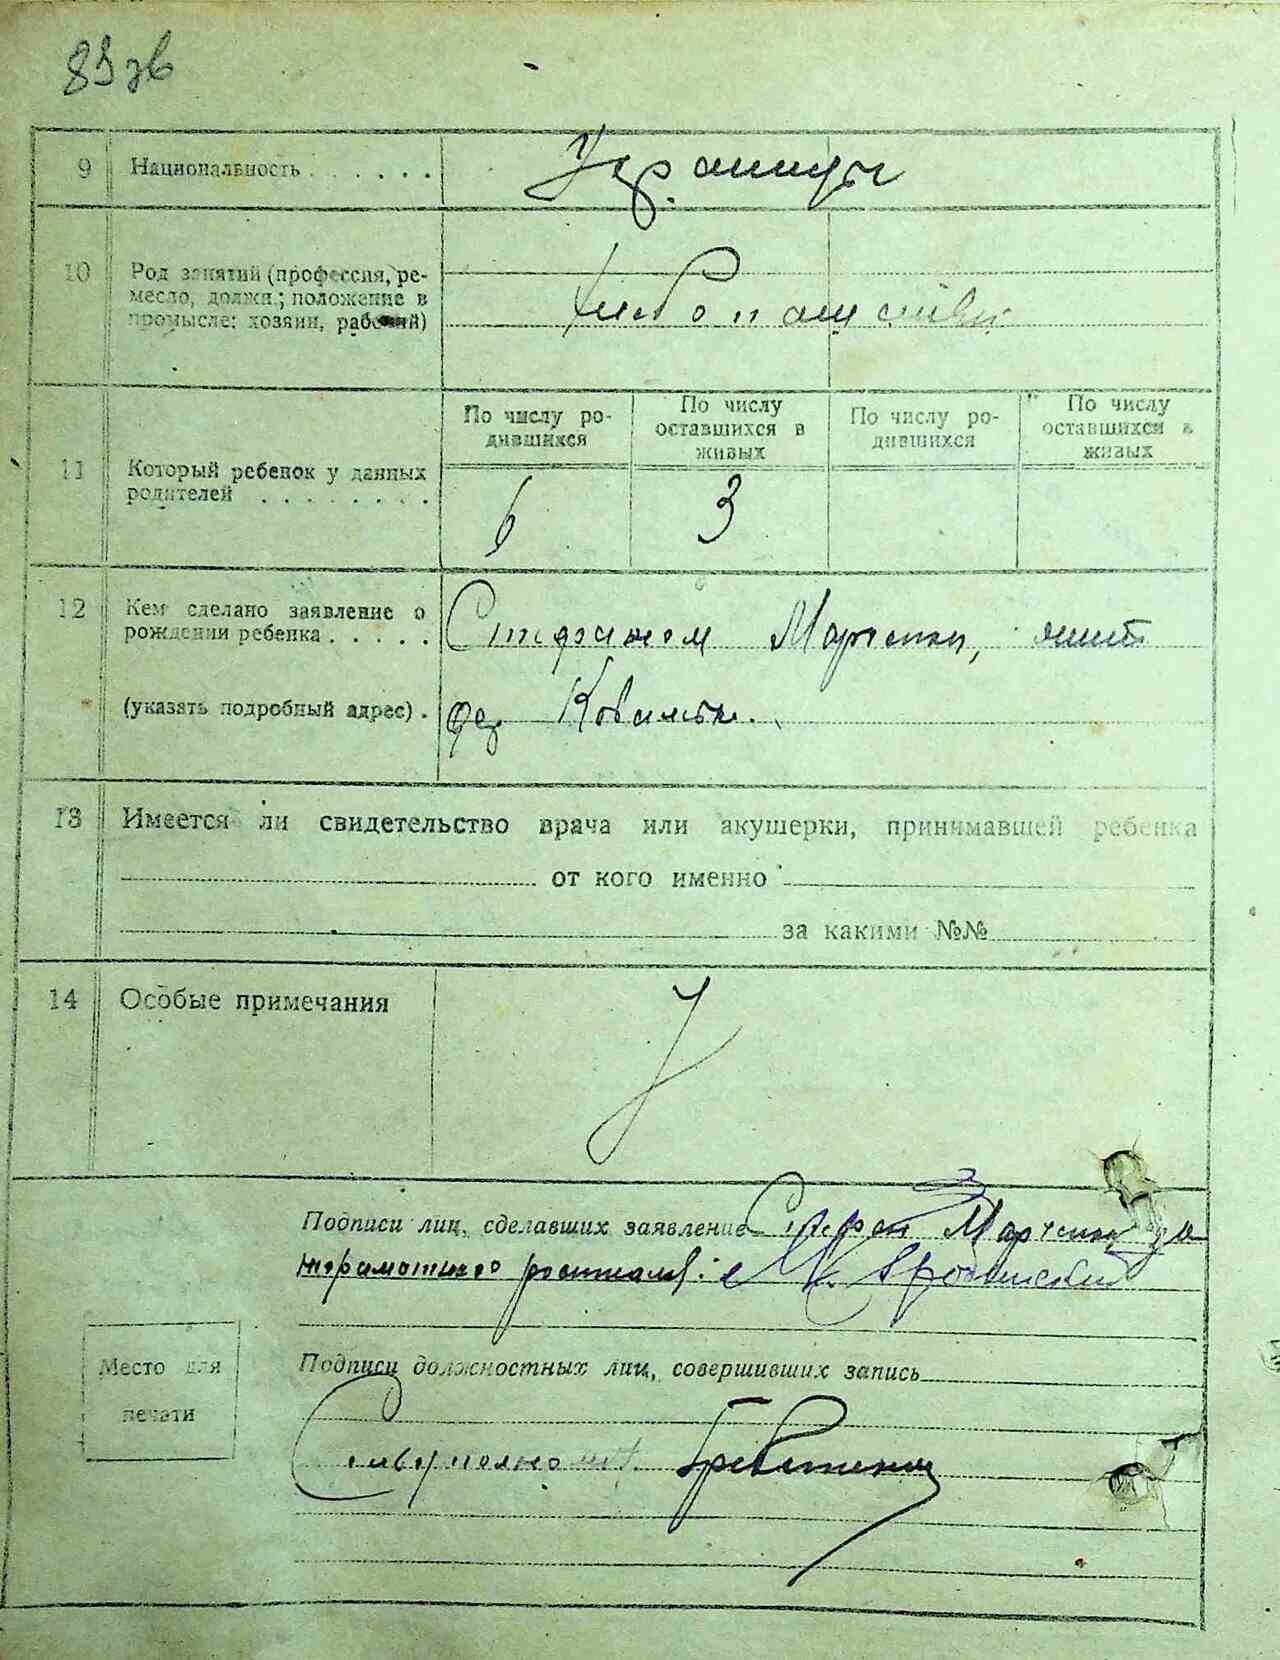 85 зв
9 Национальность . . . . . . Украинцы
10 Род занятий (профессия, ре-
месло, должн.; положение в
промысле: хозяин, рабочий)
Хлебопашество
По числу ро-
дившихся
По числу
оставшихся в
живых
По числу ро-
дившихся
По числу
оставшихся в
живых
11 Который ребенок у данных
родителей . . . . . . . .
6 3
12 Кем сделано заявление о
рождении ребенка . . . . .
(указать подробный адрес) .
Стефаном Марченко,
13 Имеется ли свидетельство врача или акушерки, принимавшей ребенка
от кого именно
за какими №№
14 Особые примечания
Подписи лиц, сделавших заявление Стефан Марченко, за
неграмотного расписался:
Место для
печати
Подписи должностных лиц, совершивших запись